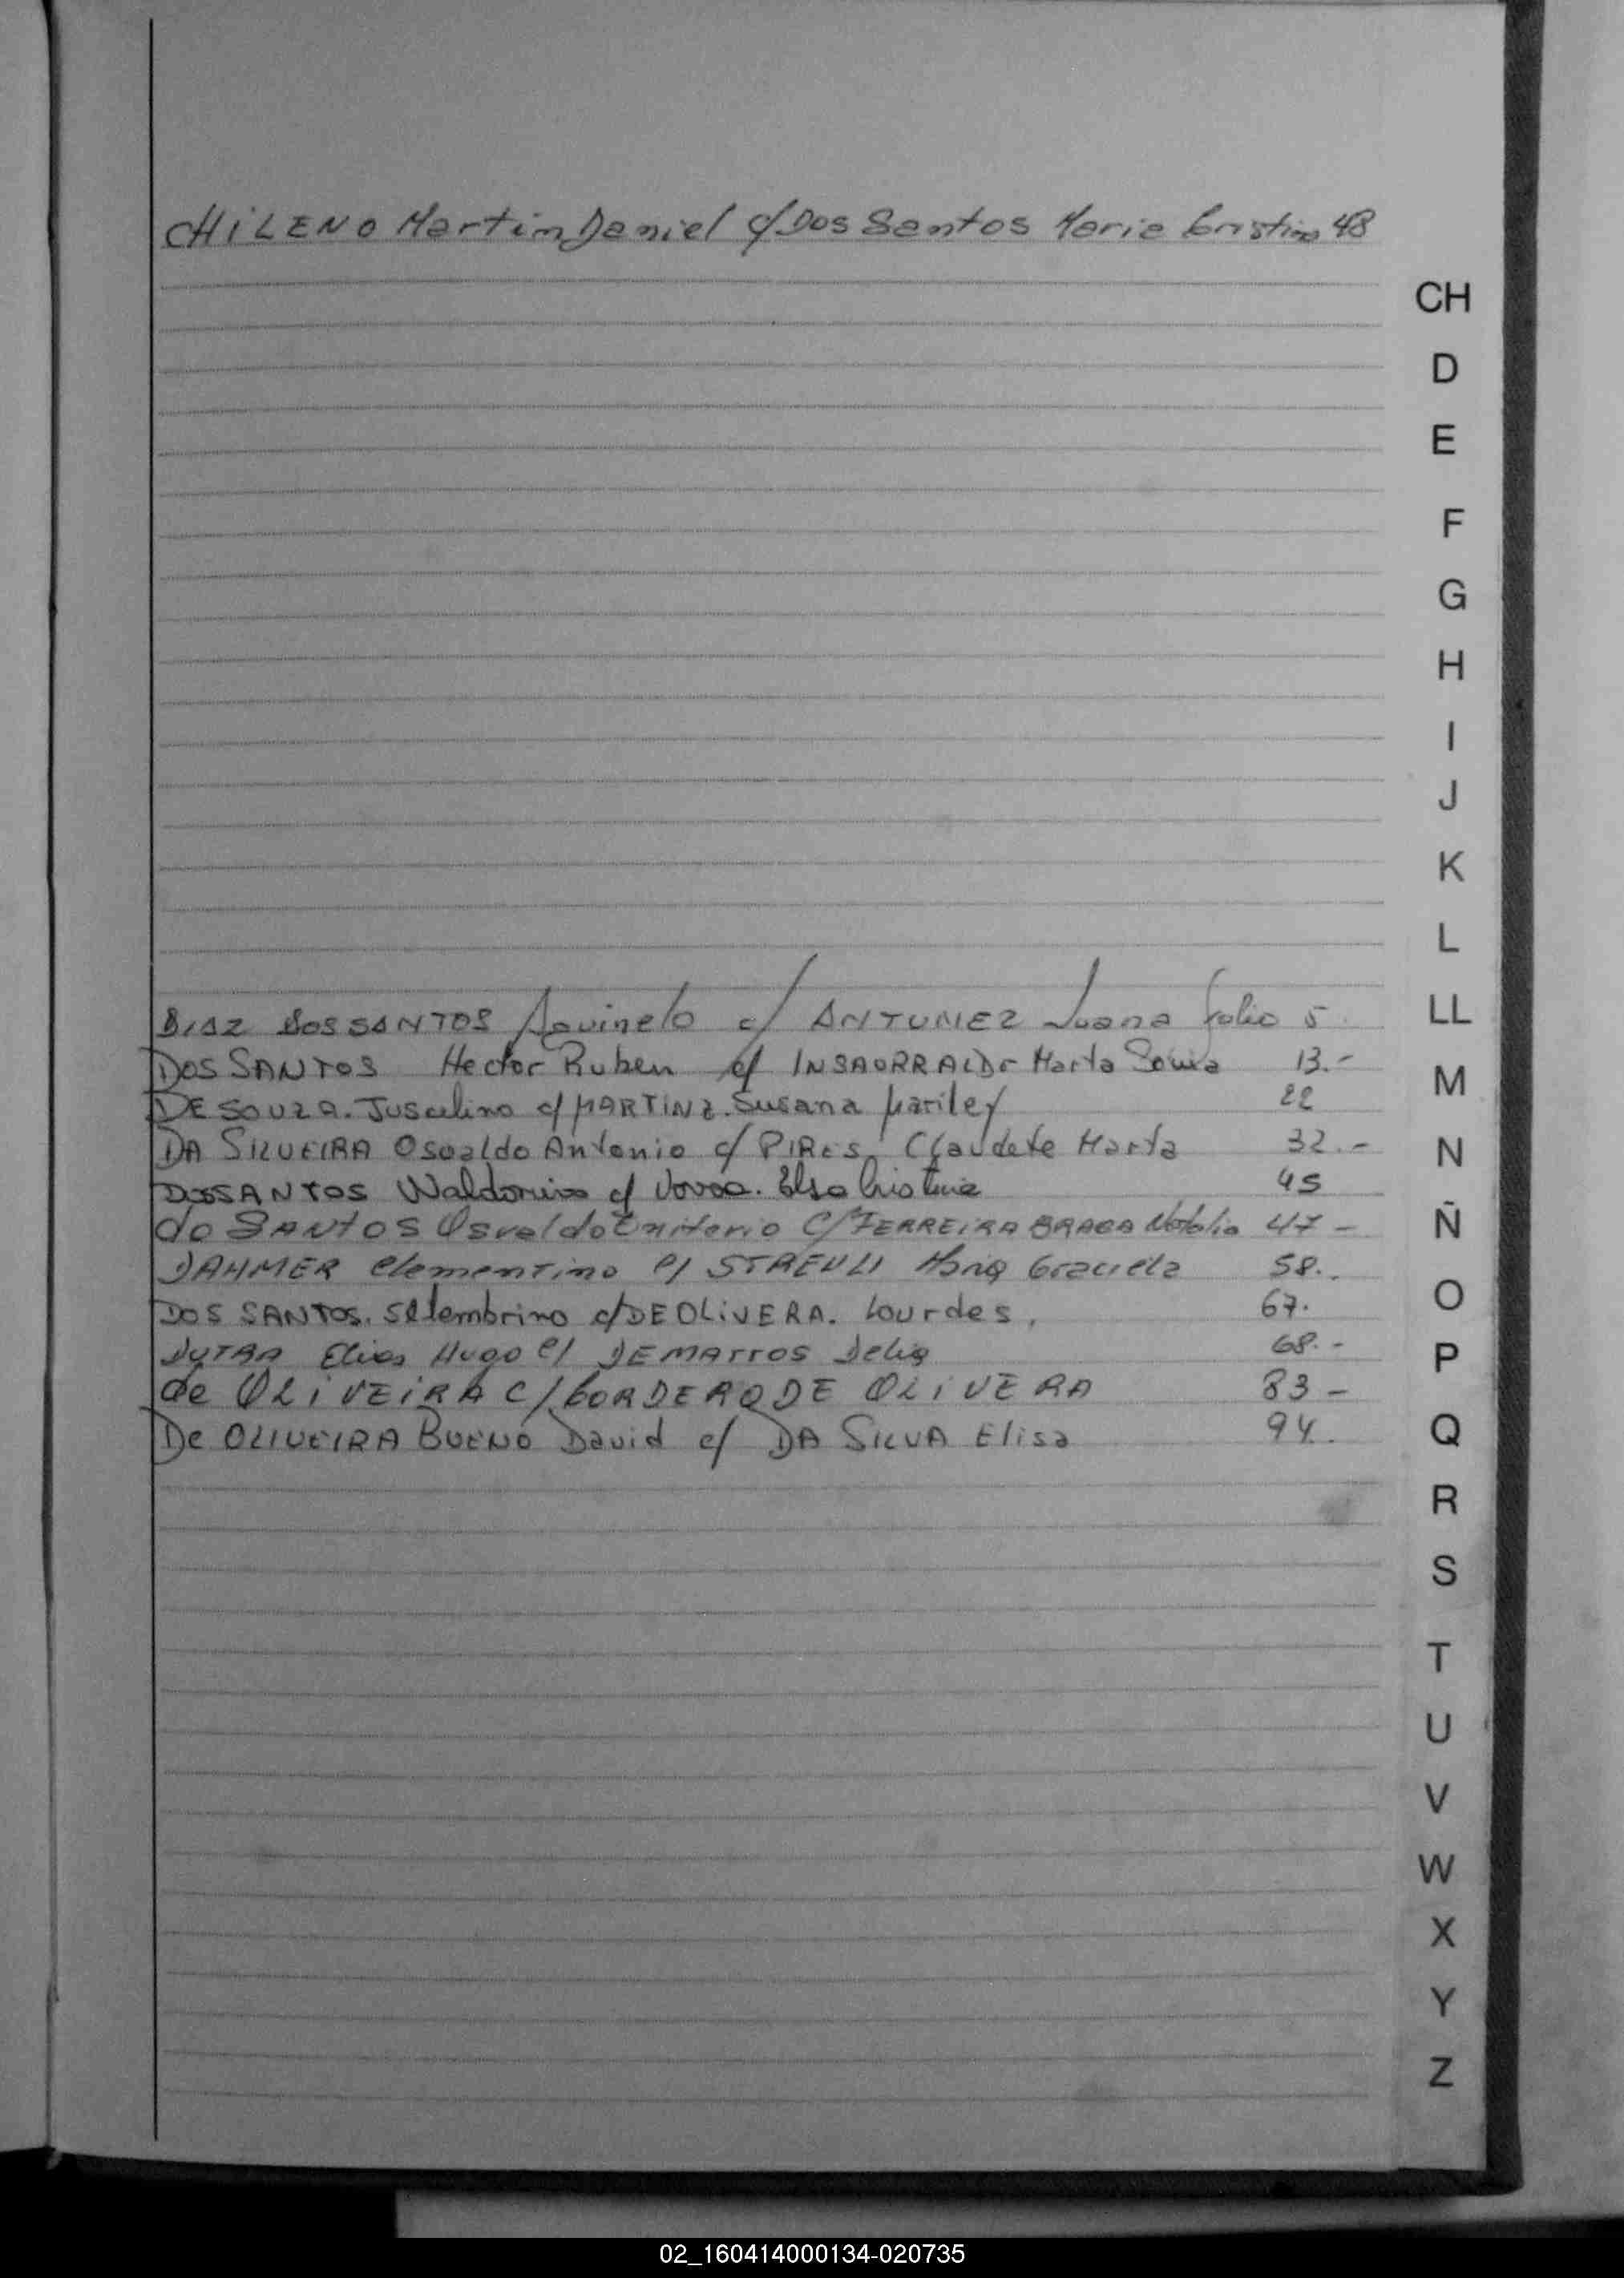 CHiLENO Martin Daniel c/ Dos Santos Maria Cristina 48
CH
D
E
F
G
H
I
J
K
L
DIAZ DOS SANTOS c/ ANTUNEZ Juana folio 5
LL
DOS SANTOS Hector Ruben c/ INSAURRALDE Marta Sonia 13.-
DE SOUZA. Juscelino c/ MARTINZ. Susana Mariley 22
M
DA SILVEIRA Osvaldo Antonio c/ PIRES, Claudete Marta 32.-
N
DOS SANTOS Waldomiro c/ Elsa Cristina 45
do SANTOS Osvaldo c/ FERREIRA BRAGA Natalia 47 -
Ñ
DAHMER Clementino c/ STREULI Maria Graciela 58.
DOS SANTOS. Setembrino c/ DE OLiVERA. Lourdes. 67.
O
DUTRA Elias Hugo c/ DEMARROS Delia 68.-
P
de OLiVEiRA c/ CORDERO DE OLiVERA 83 -
De OLIVEIRA BUENO David c/ DA SILVA Elisa 94.
Q
R
S
T
U
V
W
X
Y
Z
02_160414000134-020735